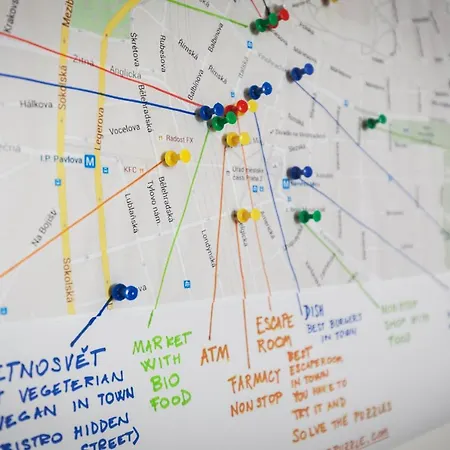 Mezib
Škrétova
Rubešova
Balbínova
Římská
Římská
Žitná
Anglická
Bělehradská
Balbínova
Hálkova
Sokolská
Legerova
Vocelova
Radost FX
I.P. Pavlova
M
KFC
Na Bojišti
Lublaňska
Tylovo nám.
Bělehradská
Londýnská
Sokolská
ETNOSVĚT
T VEGETERIAN
VEGAN IN TOWN
(BISTRO HIDDEN
STREET)
MARKET
WITH
BIO
FOOD
ATM
FARMACY
NONSTOP
ESCAPE
ROOM
BEST
ESCAPEROOM
IN TOWN
YOU HAVE TO
TRY IT AND
SOLVE THE PUZZLES
PUZZLE.COM
DISH
BEST BURGERS
IN TOWN
NON STOP
SHOP WITH
FOOD